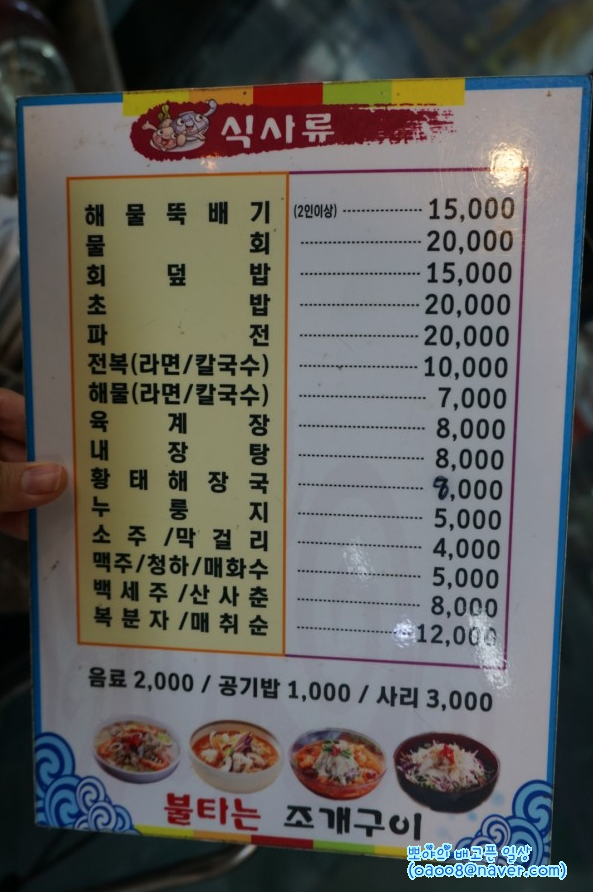 식사류
해물뚝배기 (2인이상) 15,000
물회 20,000
회덮밥 15,000
초밥 20,000
파전 20,000
전복(라면/칼국수) 10,000
해물(라면/칼국수) 7,000
육계장 8,000
내장탕 8,000
황태해장국 8,000
누룽지 5,000
소주/막걸리 4,000
맥주/청하/매화수 5,000
백세주/산사춘 8,000
복분자/매취순 12,000
음료 2,000 / 공기밥 1,000 / 사리 3,000
불타는 조개구이
뽀야의 배고픈 일상
(oao08@naver.com)